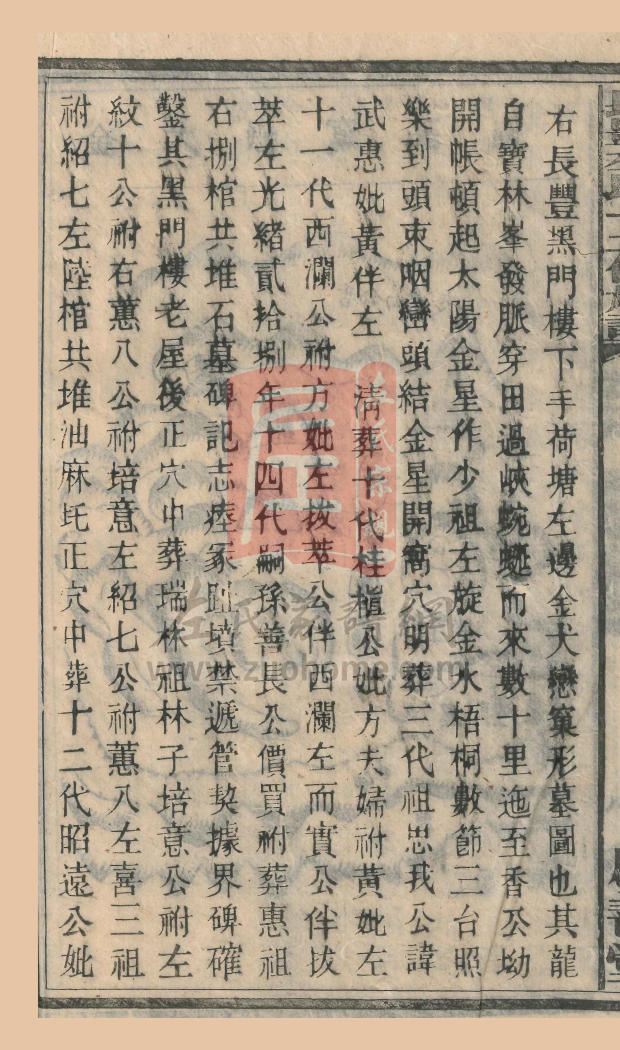 右長豐黑門樓下手荷塘左邊金犬戀窠形墓圖也其龍
自寶林峯發脈穿田過峽蜿蜒而來數十里迤至香公坳
開帳頓起太陽金星作少祖左旋金水梧桐數節三台照
樂到頭束咽巒頭結金星開窩穴明葬三代祖忠我公諱
武惠妣黃伴左 清葬十代桂槐公妣方夫婦祔黃妣左
十一代西瀾公祔方妣左拔萃公伴西瀾左而實公伴拔
萃左光緒貳拾捌年十四代嗣孫善長公價買祔葬惠祖
右捌棺共堆石墓碑記志瘞冢趾墳禁遞管契據界碑確
鑿其黑門樓老屋後正穴中葬瑞林祖林子培意公祔左
紋十公祔右蕙八公祔培意左紹七公祔蕙八左喜三祖
祔紹七左陸棺共堆油麻坵正穴中葬十二代昭遠公妣
左氏宗譜網
www.zuohome.com